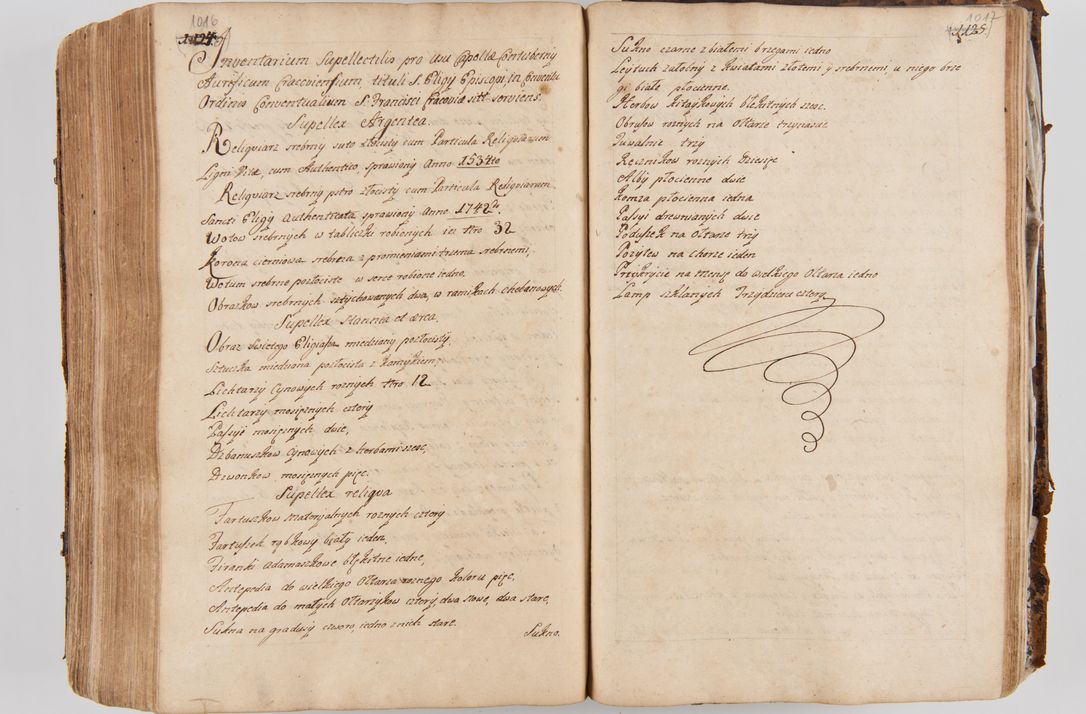 1016
1124
Inventarium Supellectilis pro usu Capellæ Contubernij
Aurificum Cracoviensium, tituli S. Eligij Episcopi in Conventu
Ordinis Conventualium S. Francisci Cracoviæ sitt serviens.
Supellex Argentea.
Reliquiarz srebrny suto złocisty cum Particula Reliquiarum
Ligni Vitæ, cum Authentico, sprawiony Anno 1534to
Reliquiarz srebrny pstro złocisty cum Particula Reliquiarum
Sancti Eligij Authenticata sprawiony Anno 1742do.
Wotow srebrnych w tabliczki robionych in Nro 32
Korona cierniowa srebrna z promieniami trzema srebrnemi,
Wotum srebrne pozłociste w serce robione iedno.
Obrazkow srebrnych sztychowanych dwa, w ramikach chebanowych.
Supellex Stannea et ærea.
Obraz Swietego Eligiusza miedziany pozłocisty,
Sztuczka miedziana pozłocista z kamykiem,
Lichtarzy Cynowych roznych Nro 12
Lichtarzy mosiężnych cztery
Passyi mosiężnych dwie,
Dzbanuszkow Cynowych z Herbami szesc,
Dzwonkow mosiężnych pięc.
Supellex reliqua
Fartuszkow materyalnych roznych cztery
Fartuszek rąbkowy biały ieden,
Firanki Adamaszkowe błękitne iedne,
Antepedia do wielkiego Ołtarza roznego koloru pięc,
Antepedia do małych Ołtarzykow cztery, dwa nowe, dwa stare,
Sukna na gradusy czworo, iedno z nich stare.
Sukno.
1017
1125
Sukno czarne z białemi brzegami iedno
Leytuch żałobny z kwiatami złotemi y srebrnemi, u niego brze
gi białe płocienne.
Herbow kitaykowych błękitnych szesc.
Obrusow roznych na Ołtarze trzynascie
Tuwalnie trzy
Ręcznikow roznych dziesięc
Alby płocienne dwie
Komza płocienna iedna
Passyi drewnianych dwie
Poduszek na Ołtarze trzy
Pozytew na chorze ieden
Przykrycie na mensę do wielkiego Ołtarza iedno
Lamp szklanych Trzydziesci cztery